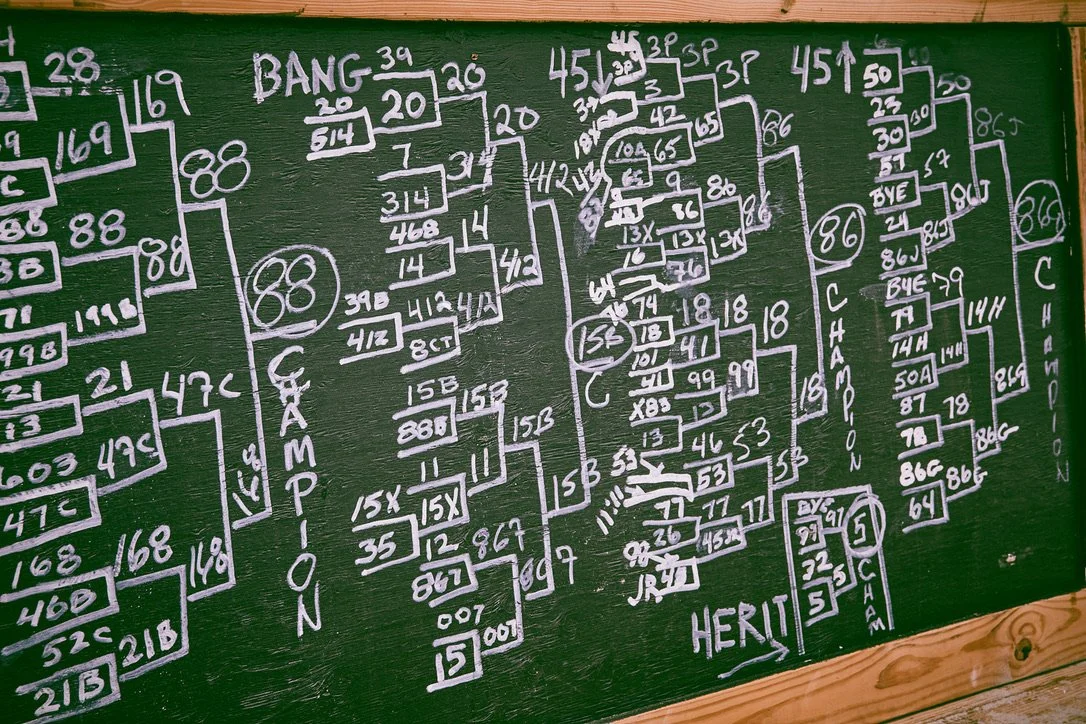 28
169
169
88
88
88
88
199B
88
CHAMPION
21
21
13
47C
603
47C
47C
168
168
168
46B
168
52C
21B
21B
BANG
39
20
20
20
514
20
7
314
46B
14
14
412
412
39B
412
412
8CT
412
15B
15B
88B
15B
11
11
15X
15X
35
12
867
867
007
007
15
15B
15B
C
45↓
3P
3P
3P
3
42
65
65
10A
65
86
9
86
86
86
13X
13X
13X
16
76
64
74
18
18
18
18
101
41
41
99
99
X83
13
13
18
46
53
53
53
53
11:11
77
77
77
26
JR
86
CHAMPION
45↑
50
50
23
30
30
57
57
BYE
24
86J
86J
86J
86J
BYE
79
79
14H
14H
14H
50A
87
78
78
86G
86G
86G
86G
64
86G
CHAMPION
HERIT
BYE
97
97
32
5
5
5
CHAM